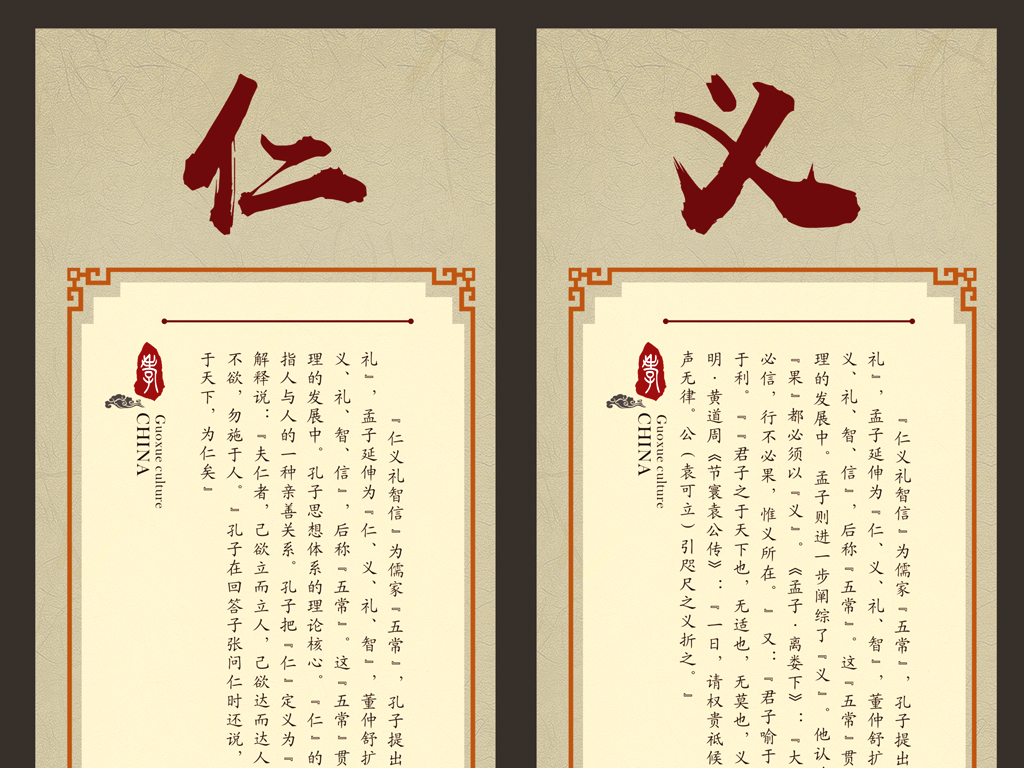 仁
『仁义礼智信』为儒家『五常』，孔子提出
礼』，孟子延伸为『仁、义、礼、智』，董仲舒扩
义、礼、智、信』，后称『五常』。这『五常』贯
理的发展中。孔子思想体系的理论核心。『仁』的
指人与人的一种亲善关系。孔子把『仁』定义为『
解释说：『夫仁者，己欲立而立人，己欲达而达人
不欲，勿施于人。』孔子在回答子张问仁时还说，
于天下，为仁矣』
Guoxue culture
CHINA
义
『仁义礼智信』为儒家『五常』，孔子提出
礼』，孟子延伸为『仁、义、礼、智』，董仲舒扩
义、礼、智、信』，后称『五常』。这『五常』贯
理的发展中。孟子则进一步阐综了『义』。他认
『果』都必须以『义』。《孟子·离娄下》：『大
必信，行不必果，惟义所在。』又：『君子喻于
于利。『『君子之于天下也，无适也，无莫也，义
明·黄道周《节寰袁公传》：『一日，请权贵祗候
声无律。公（袁可立）引咫尺之义折之。』
Guoxue culture
CHINA